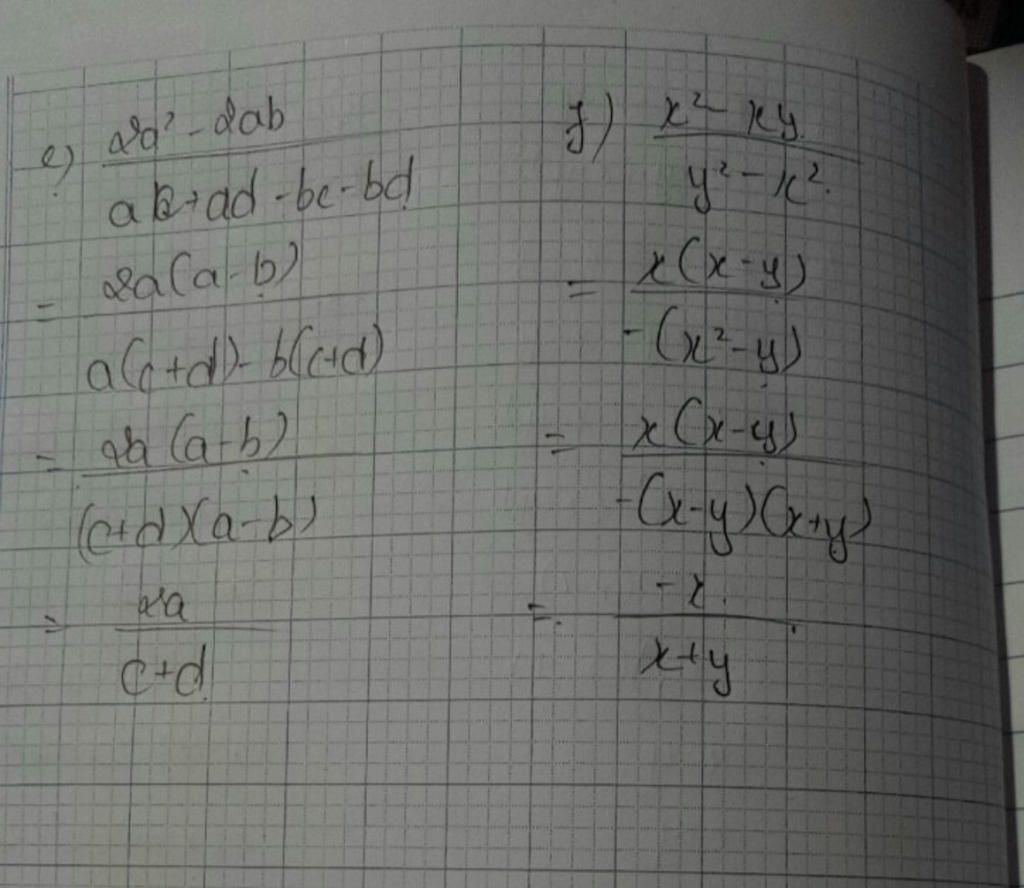 e) (2a² - 2ab)/(ac + ad - bc - bd)
= 2a(a - b)/(a(c + d) - b(c + d))
= 2a(a - b)/((c + d)(a - b))
= 2a/(c + d)
f) (x² - xy)/(y² - x²)
= x(x - y)/(-(x² - y))
= x(x - y)/(-(x - y)(x + y))
= -x/(x + y)